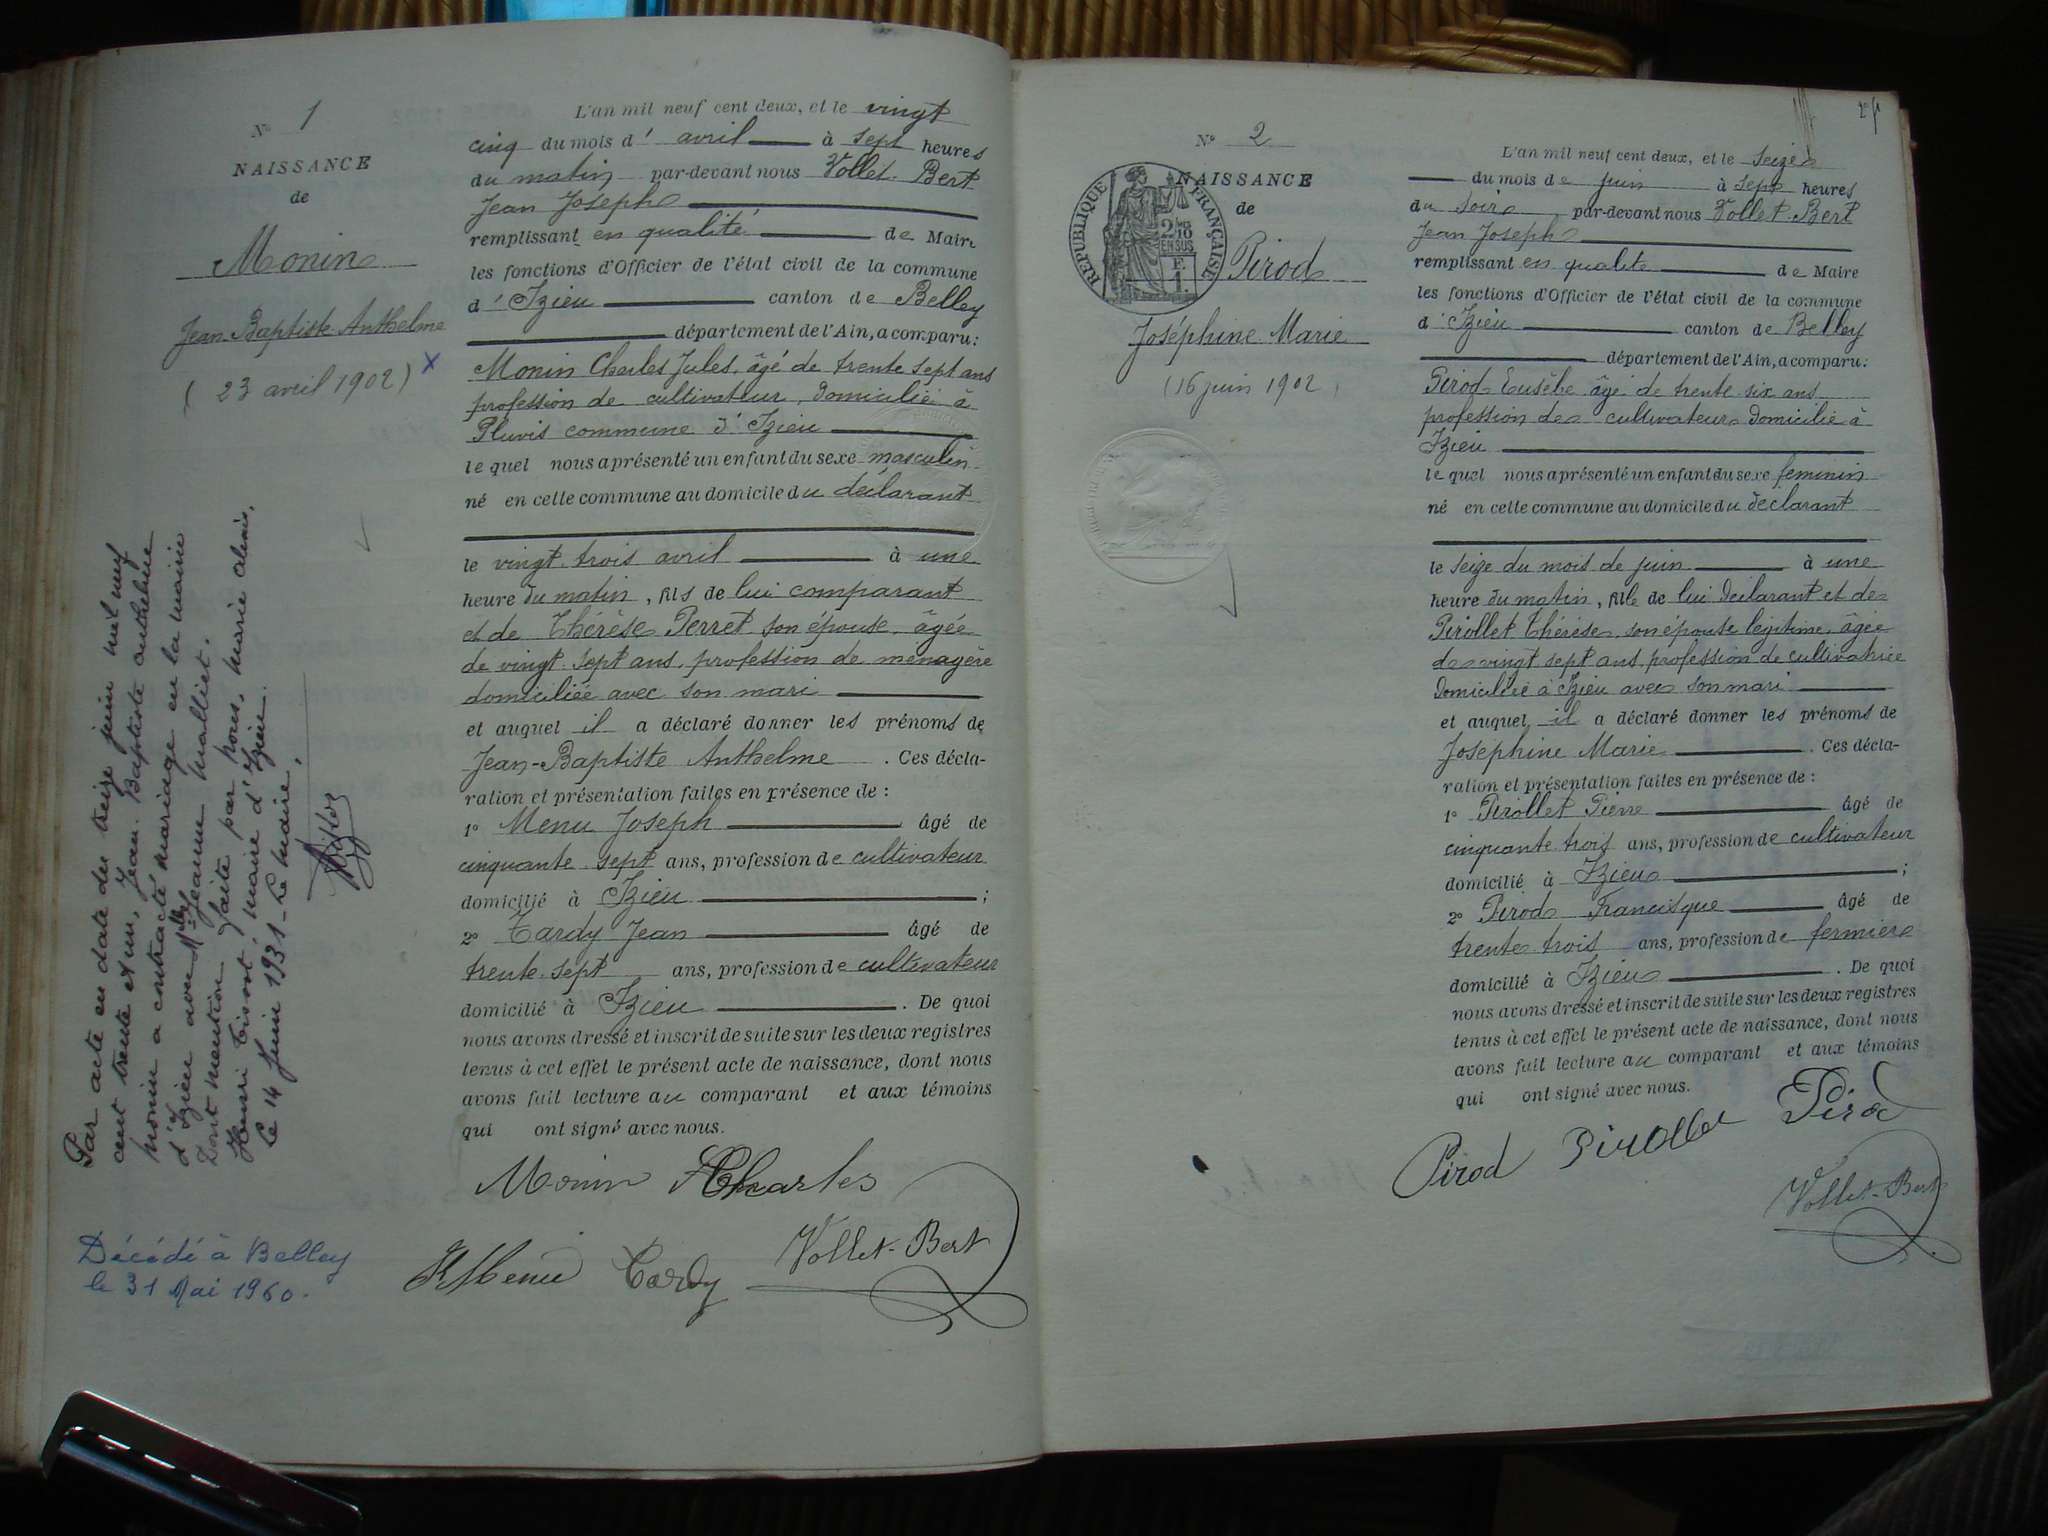 N° 1
NAISSANCE
de
Monin
Jean Baptiste Anthelme
(23 avril 1902) x
Par acte en date du treize juin mil neuf
cent trente et un, Jean-Baptiste anthelme
monin a contracté mariage en la mairie
d'Izieu avec Melle Jeanne Malliet.
Dont mention faite par nous, marie alexis,
Henri Tissot, maire d'Izieu.
Le 14 Juin 1931 - Le maire,
Décédé à Belley
le 31 Mai 1960.
L'an mil neuf cent deux, et le vingt
cinq du mois d' avril à sept heures
du matin par-devant nous Vollet-Bert
Jean Joseph
remplissant en qualité de Maire
les fonctions d'Officier de l'état civil de la commune
d'Izieu canton de Belley
département de l'Ain, a comparu:
Monin Charles Jules, âgé de trente sept ans
profession de cultivateur, domicilié à
Pluvis commune d'Izieu
le quel nous a présenté un enfant du sexe masculin
né en cette commune au domicile du déclarant
le vingt trois avril à une
heure du matin, fils de lui comparant
et de Thérèse Perret son épouse, âgée
de vingt sept ans, profession de ménagère
domiciliée avec son mari
et auquel il a déclaré donner les prénoms de
Jean-Baptiste Anthelme . Ces décla-
ration et présentation faites en présence de :
1° Menu Joseph âgé de
cinquante sept ans, profession de cultivateur
domicilié à Izieu ;
2° Tardy Jean âgé de
trente sept ans, profession de cultivateur
domicilié à Izieu . De quoi
nous avons dressé et inscrit de suite sur les deux registres
tenus à cet effet le présent acte de naissance, dont nous
avons fait lecture au comparant et aux témoins
qui ont signé avec nous.
Monin Charles
Menu Tardy Vollet-Bert
N° 2
NAISSANCE
de
RÉPUBLIQUE FRANÇAISE
2/10
EN SUS
Pirod
Joséphine Marie
(16 juin 1902)
L'an mil neuf cent deux, et le seize
du mois de juin à sept heures
du soir par-devant nous Vollet-Bert
Jean Joseph
remplissant en qualité de Maire
les fonctions d'Officier de l'état civil de la commune
d'Izieu canton de Belley
département de l'Ain, a comparu:
Pirod Eusèbe âgé de trente six ans
profession de cultivateur domicilié à
Izieu
le quel nous a présenté un enfant du sexe feminin
né en cette commune au domicile du déclarant
le seize du mois de juin à une
heure du matin, fille de lui déclarant et de
Pirollet Thérèse, son épouse légitime, âgée
de vingt sept ans profession de cultivatrice
domiciliée à Izieu avec son mari
et auquel il a déclaré donner les prénoms de
Joséphine Marie . Ces décla-
ration et présentation faites en présence de :
1° Pirollet Pierre âgé de
cinquante trois ans, profession de cultivateur
domicilié à Izieu ;
2° Pirod Francisque âgé de
trente trois ans, profession de fermier
domicilié à Izieu . De quoi
nous avons dressé et inscrit de suite sur les deux registres
tenus à cet effet le présent acte de naissance, dont nous
avons fait lecture au comparant et aux témoins
qui ont signé avec nous.
Pirod Pirollet Pirod
Vollet-Bert